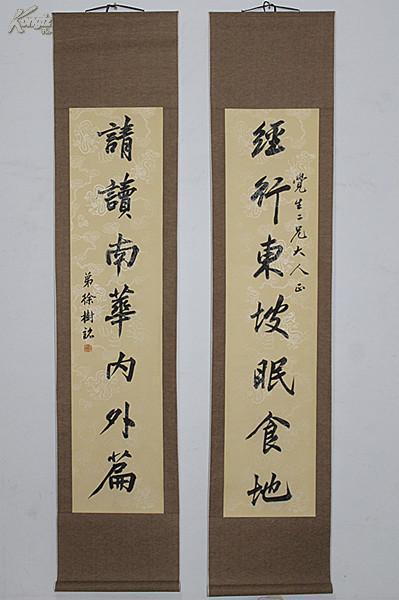 經行東坡眠食地
覺生二兄大人正
請讀南華內外篇
弟徐樹銘